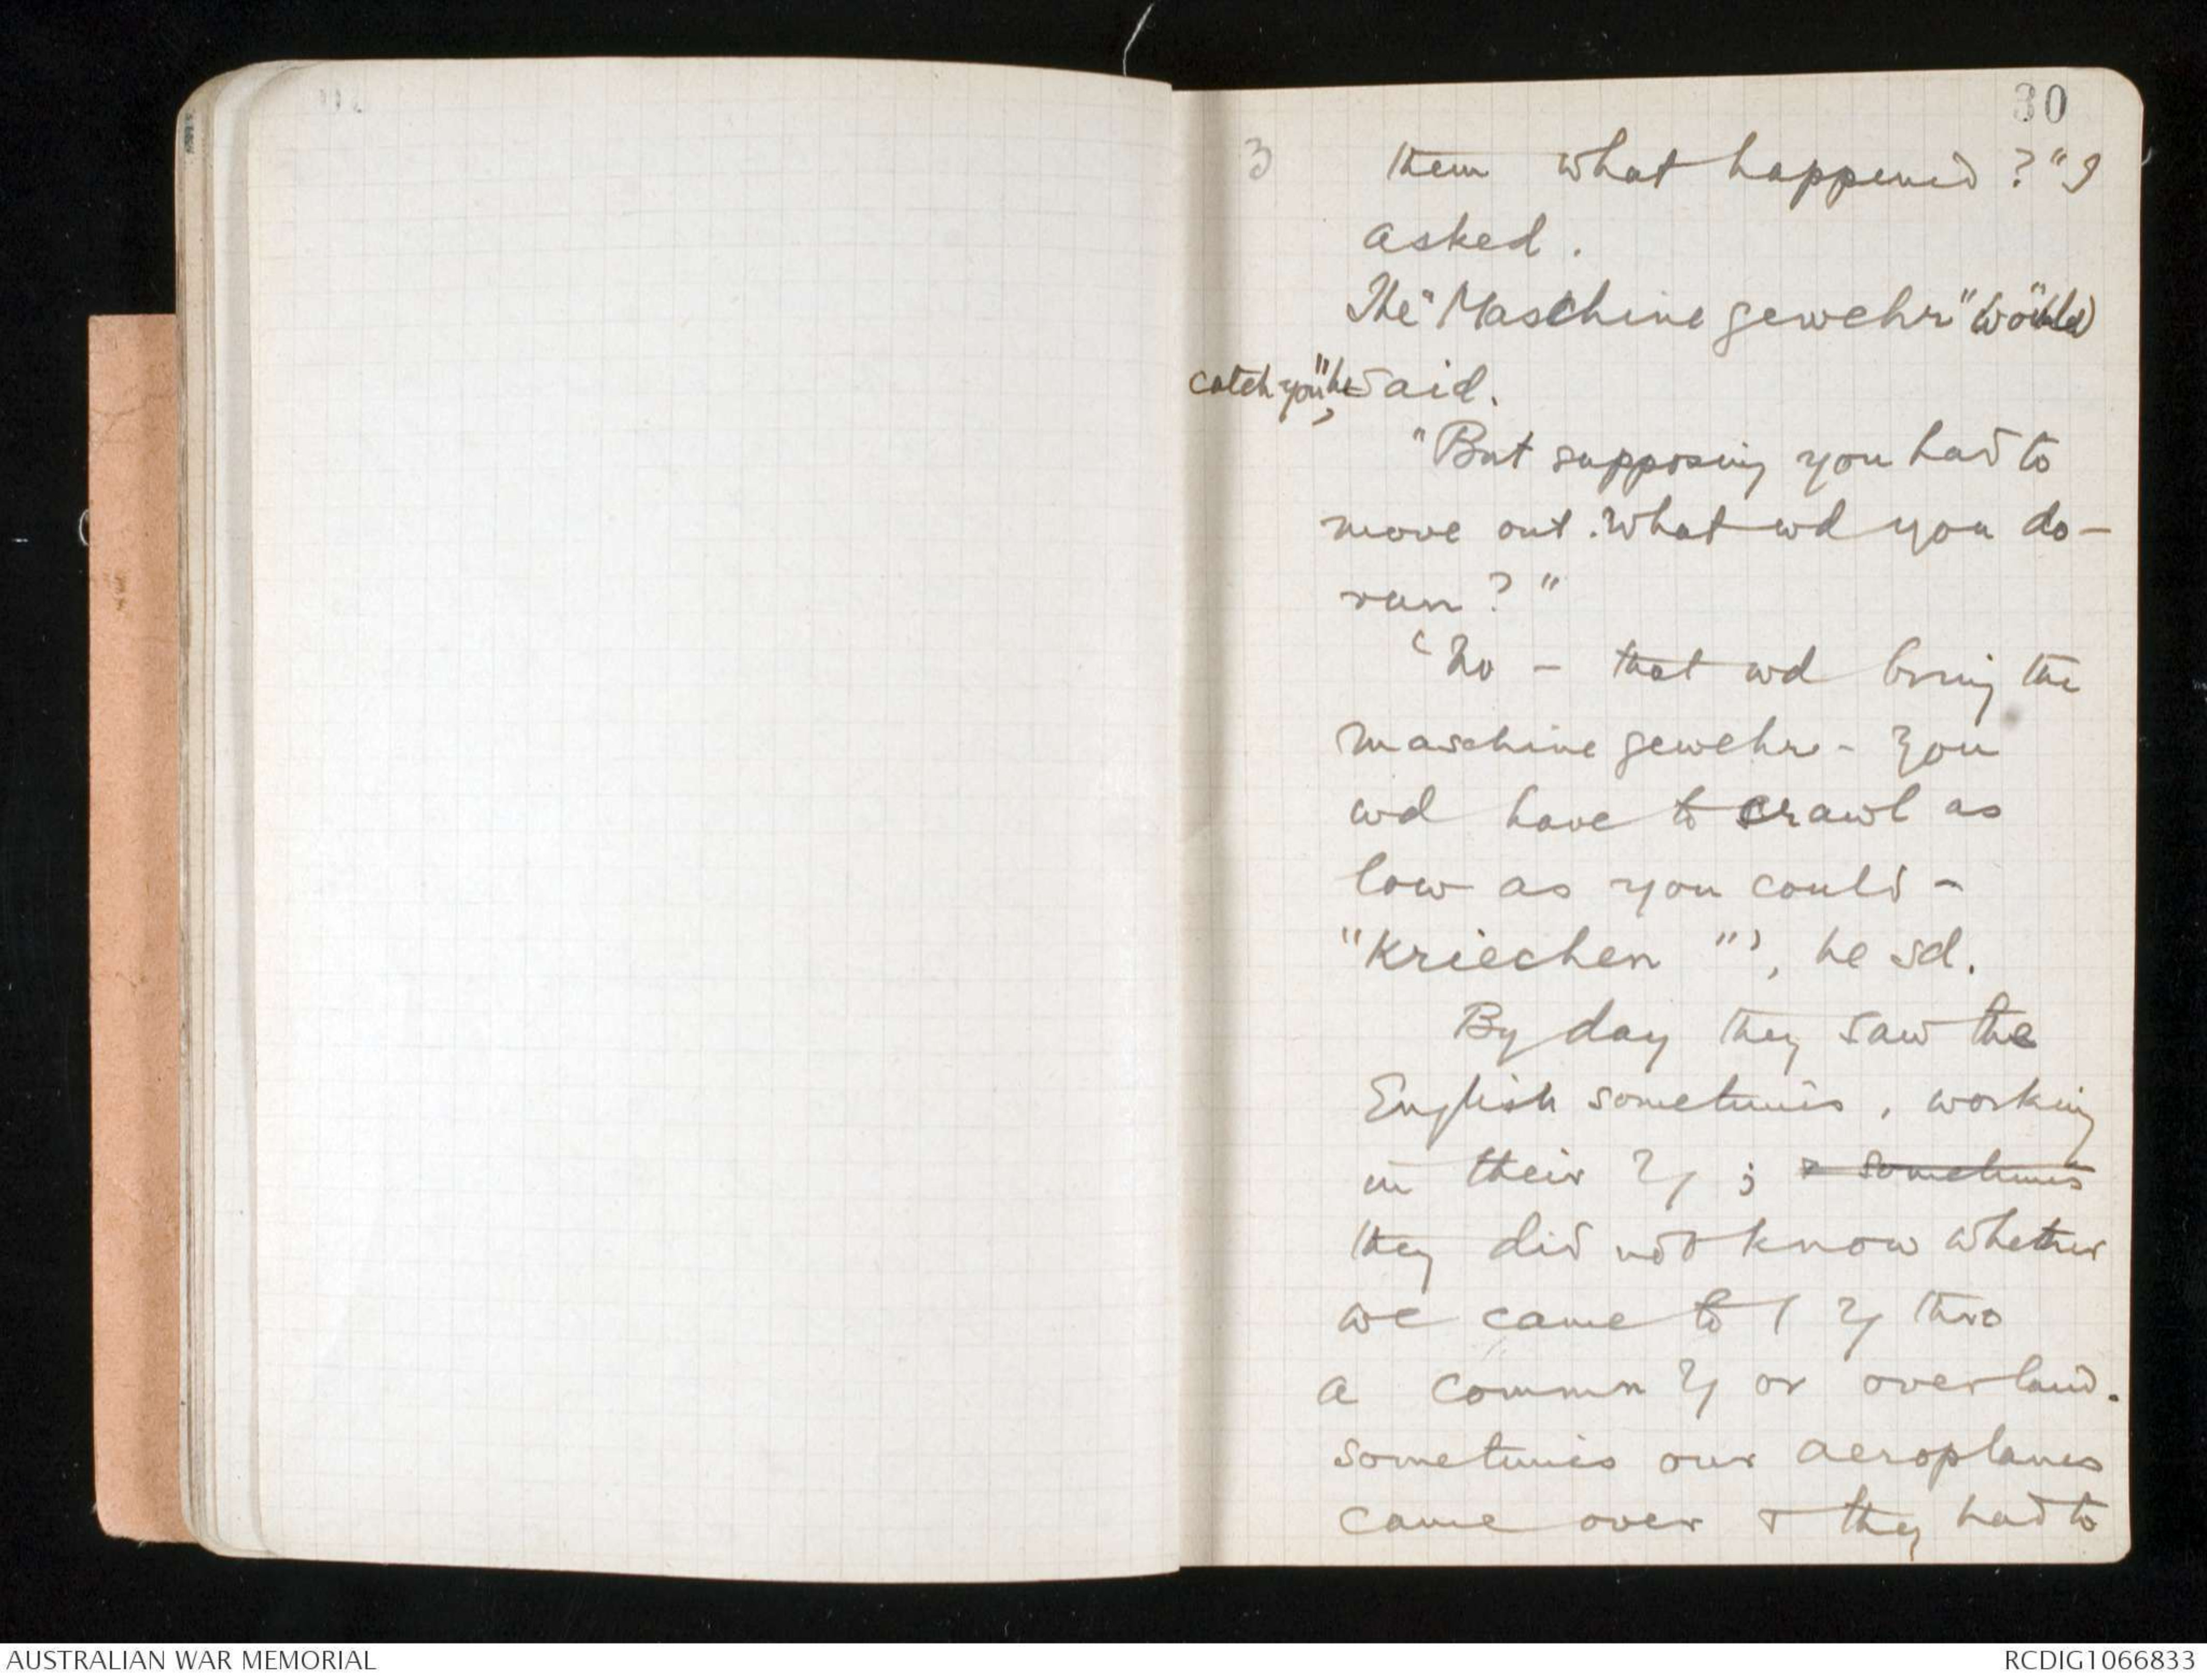 30
3
them what happened?" I
asked.
The "Maschine gewehr" "would
catch you", he said.
"But supposing you had to
move out. What wd you do -
run?"
'No - that wd bring the
maschine gewehr - You
wd have to crawl as
low as you could -
"Kriechen"', he sd.
By day they saw the
English sometimes, working
in their ; & sometimes
they did not know whether
we came to / thro
a commn or overland.
Sometimes our aeroplanes
came over & they had to
AUSTRALIAN WAR MEMORIAL
RCDIG1066833